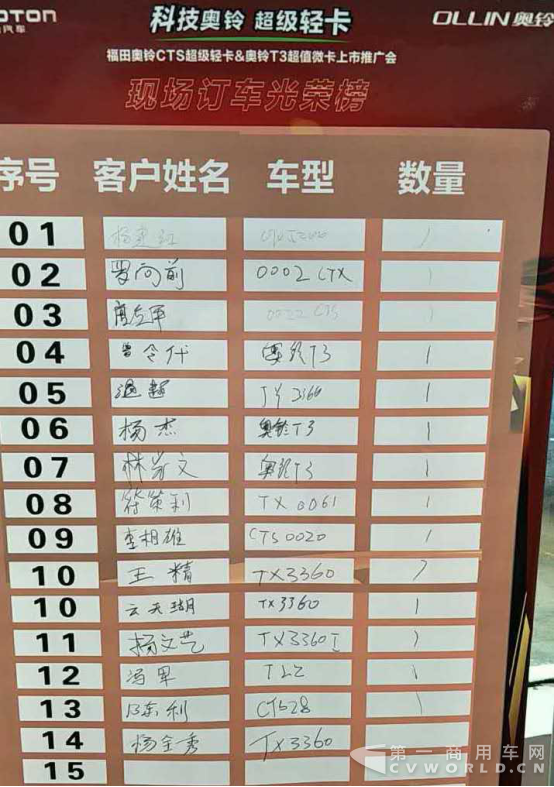 OTON
汽车
科技奥铃 超级轻卡
OLLIN 奥铃
福田奥铃CTS超级轻卡&奥铃T3超值微卡上市推广会
现场订车光荣榜
序号 客户姓名 车型 数量
01
02 向前 0002 CTX 1
03 0022 CTS 1
04 奥铃T3 1
05 超 3360 1
06 杨杰 奥铃T3 1
07 林 文 奥铃T3 1
08 符策利 TX 0061 1
09 李相雄 CTS0020 1
10 王精 TX3360
10 云天瑚 TX3360 1
11 杨文艺 TX3360I 1
12 冯军 1
13 陈东利 CTS28 1
14 杨全秀 TX3360
15
第一商用车网
CVWORLD.CN